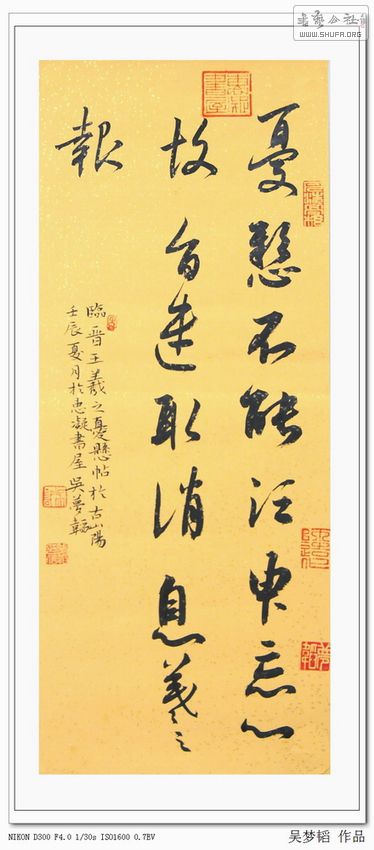 書藝公社
WWW.SHUFA.ORG
憂懸不能注申忘心
故旨遣取消息羲之
報
臨晋王羲之憂懸帖於古山陽
壬辰夏月於惠凝書屋吳夢韜
NIKON D300 F4.0 1/30s ISO1600 0.7EV
吴梦韬 作品